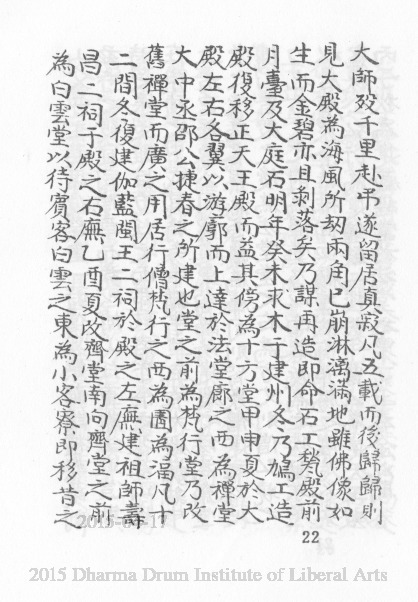 大師歿千里赴弔遂留居真寂凡五載而後歸歸則
見大殿為海風所刼兩角已崩淋漓滿地雖佛像如
生而金碧亦且剝落矣乃謀再造即命石工甃殿前
月臺及大庭石明年癸未求木于建州冬乃鳩工造
殿復移正天王殿而益其傍為十方堂甲申夏於大
殿左右各翼以游廊而上達於法堂廊之西為禪堂
大中丞邵公捷春之所建也堂之前為梵行堂乃改
舊禪堂而廣之用居行僧梵行之西為圊為湢凡十
二間冬復建伽藍閩王二祠於殿之左廡建祖師壽
昌二祠于殿之右廡乙酉夏改齋堂南向齋堂之前
為白雲堂以待賓客白雲之東為小客寮即移昔之
2015-04-17
22
2015 Dharma Drum Institute of Liberal Arts